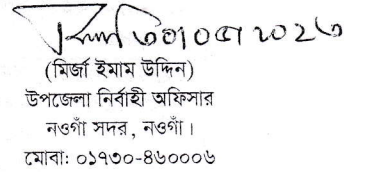 (মির্জা ইমাম উদ্দিন)
উপজেলা নির্বাহী অফিসার
নওগাঁ সদর, নওগাঁ।
মোবা: ০১৭৩০-৪৬০০০৬